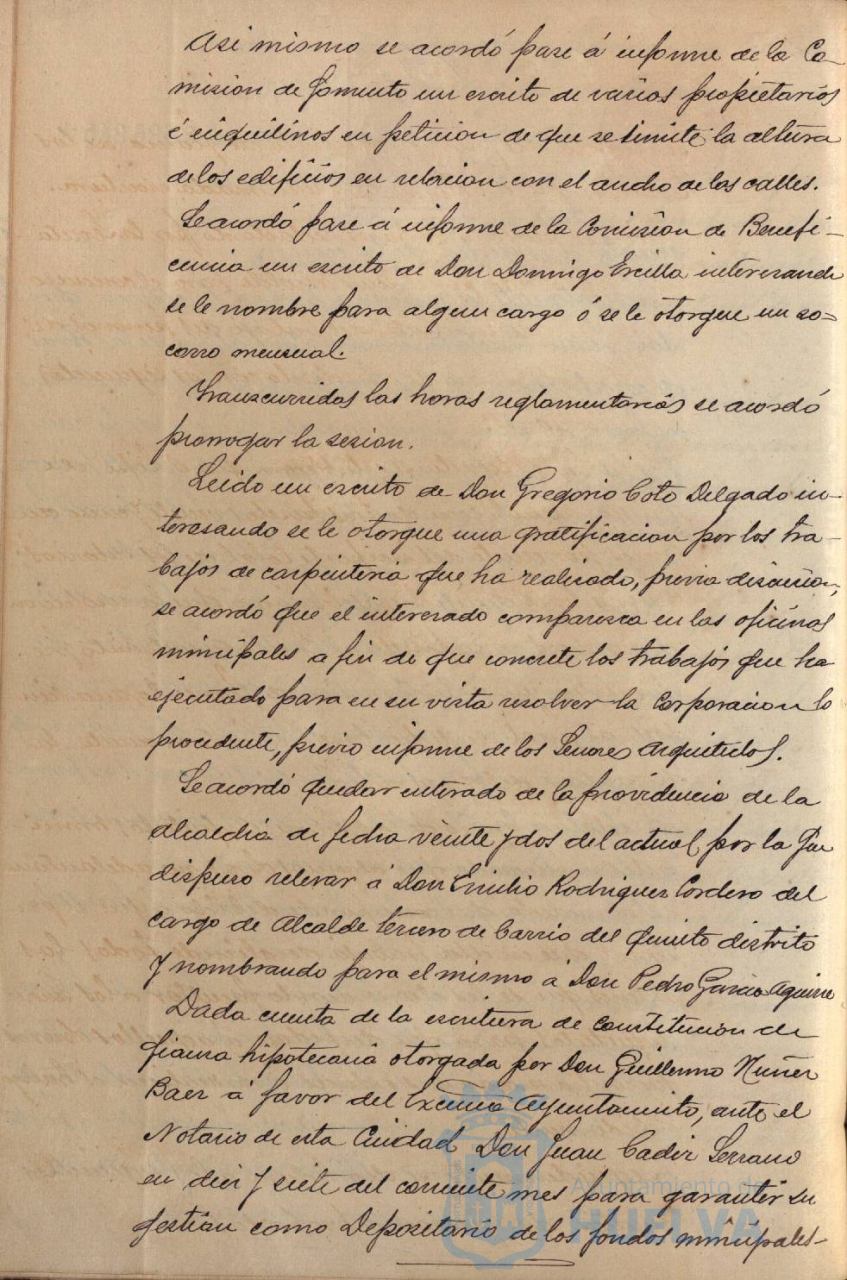 Asi mismo se acordó pase á informe de la Co-
mision de Fomento un escrito de varios propietarios
é inquilinos en peticion de que se limite la altura
de los edificios en relacion con el ancho de las calles.
Se acordó pase á informe de la Comision de Benefi-
cencia un escrito de Don Domingo Ercilla interesando
se le nombre para algun cargo ó se le otorgue un so-
corro mensual.
Transcurridas las horas reglamentarias se acordó
prorrogar la sesion.
Leido un escrito de Don Gregorio Coto Delgado in-
teresando se le otorgue una gratificacion por los tra-
bajos de carpinteria que ha realizado, previa discusion,
se acordó que el interesado comparezca en las oficinas
municipales a fin de que concrete los trabajos que ha
ejecutado para en su vista resolver la Corporacion lo
procedente, previo informe de los Senores Arquitectos.
Se acordó quedar enterado de la providencia de la
alcaldia de fecha veinte y dos del actual por la que
dispuso relevar á Don Emilio Rodriguez Cordero del
cargo de Alcalde tercero de barrio del quinto distrito
y nombrando para el mismo á Don Pedro Garcia Aguirre
Dada cuenta de la escritura de constitucion de
fianza hipotecaria otorgada por Don Guillermo Nuñez
Baez á favor del Excmo Ayuntamiento, ante el
Notario de esta Ciudad Don Juan Cadiz Serrano
en diez y siete del corriente mes para garantir su
gestion como Depositario de los fondos municipales-
Ayuntamiento de
HUELVA